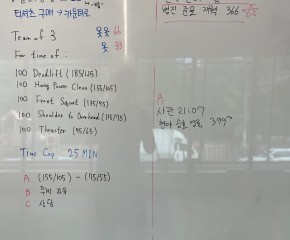 티셔츠 구매 → 카운터로
Team of 3
66
33
For time of:
100 Deadlift (185/125)
100 Hang Power Clean (155/105)
100 Front Squat (135/95)
100 Shoulder to Overhead (115/75)
100 Thruster (95/65)
Time Cap 25 MIN
A (155/105) - (75/55)
B 무게 자유
C 상담
366
A
시관 21:07
현아 승호 영훈, 399